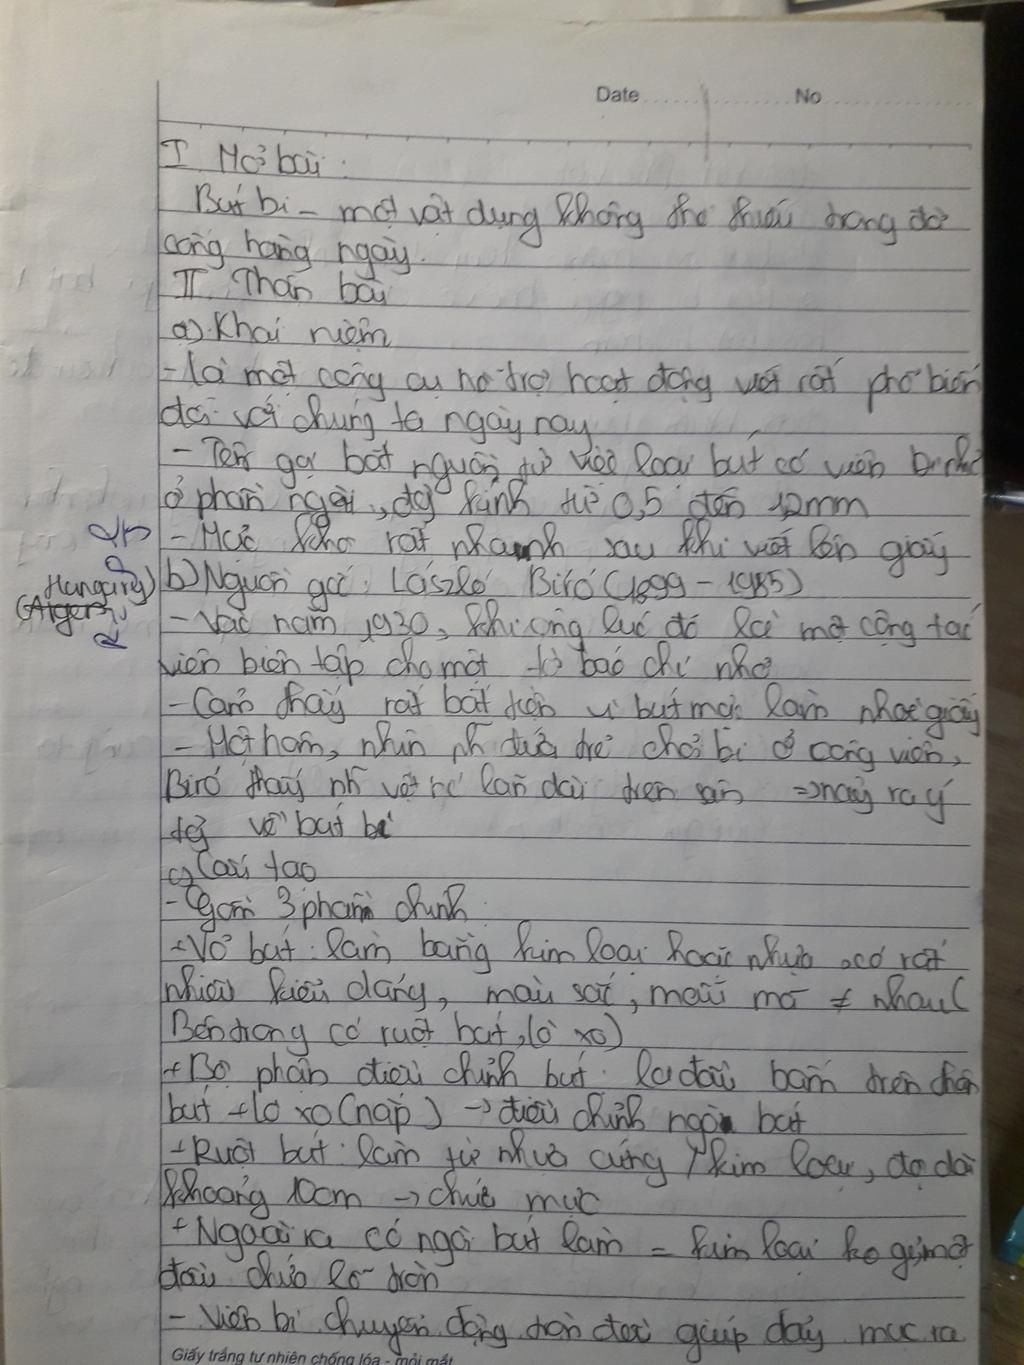 Date No
I Mở bài :
Bút bi - một vật dụng không thể thiếu trong đời
công hằng ngày.
II. Thân bài
a) Khái niệm
- Là một công cụ hỗ trợ hoạt động viết rất phổ biến
đối với chúng ta ngày nay
- Tên gọi bắt nguồn từ việc loại bút có viên bi nhỏ
ở phần ngòi, đg kính từ 0,5 đến 1,2mm
- Mực khô rất nhanh sau khi viết lên giấy
Hungary)
b) Nguồn gốc: László Bíró (1899 - 1985)
- Vào năm 1930, khi ông lúc đó là một cộng tác
viên biên tập cho một tờ báo chí nhỏ
- Cảm thấy rất bất tiện vì bút mực làm nhoè giấy
- Một hôm, nhìn nh đứa trẻ chơi bi ở công viên,
Bíró thấy nh vệt nc lăn dài trên sân => nảy ra ý
tg về bút bi
c) Cấu tạo
- Gồm 3 phần chính
+ Vỏ bút: làm bằng kim loại hoặc nhựa, có rất
nhiều kiểu dáng, màu sắc, mẫu mã ≠ nhau (
Bên trong có ruột bút, lò xo)
+ Bộ phận điều chỉnh bút: là đầu bấm trên thân
bút + lò xo (nắp) -> điều chỉnh ngòi bút
+ Ruột bút: làm từ nhựa cứng / kim loại, độ dài
khoảng 10cm -> chứa mực
+ Ngoài ra có ngòi bút làm = kim loại ko gỉ, một
đầu chứa lỗ tròn
- Viên bi chuyển động tròn đều giúp đẩy mực ra
Giấy trắng tự nhiên chống lóa - mỏi mắt